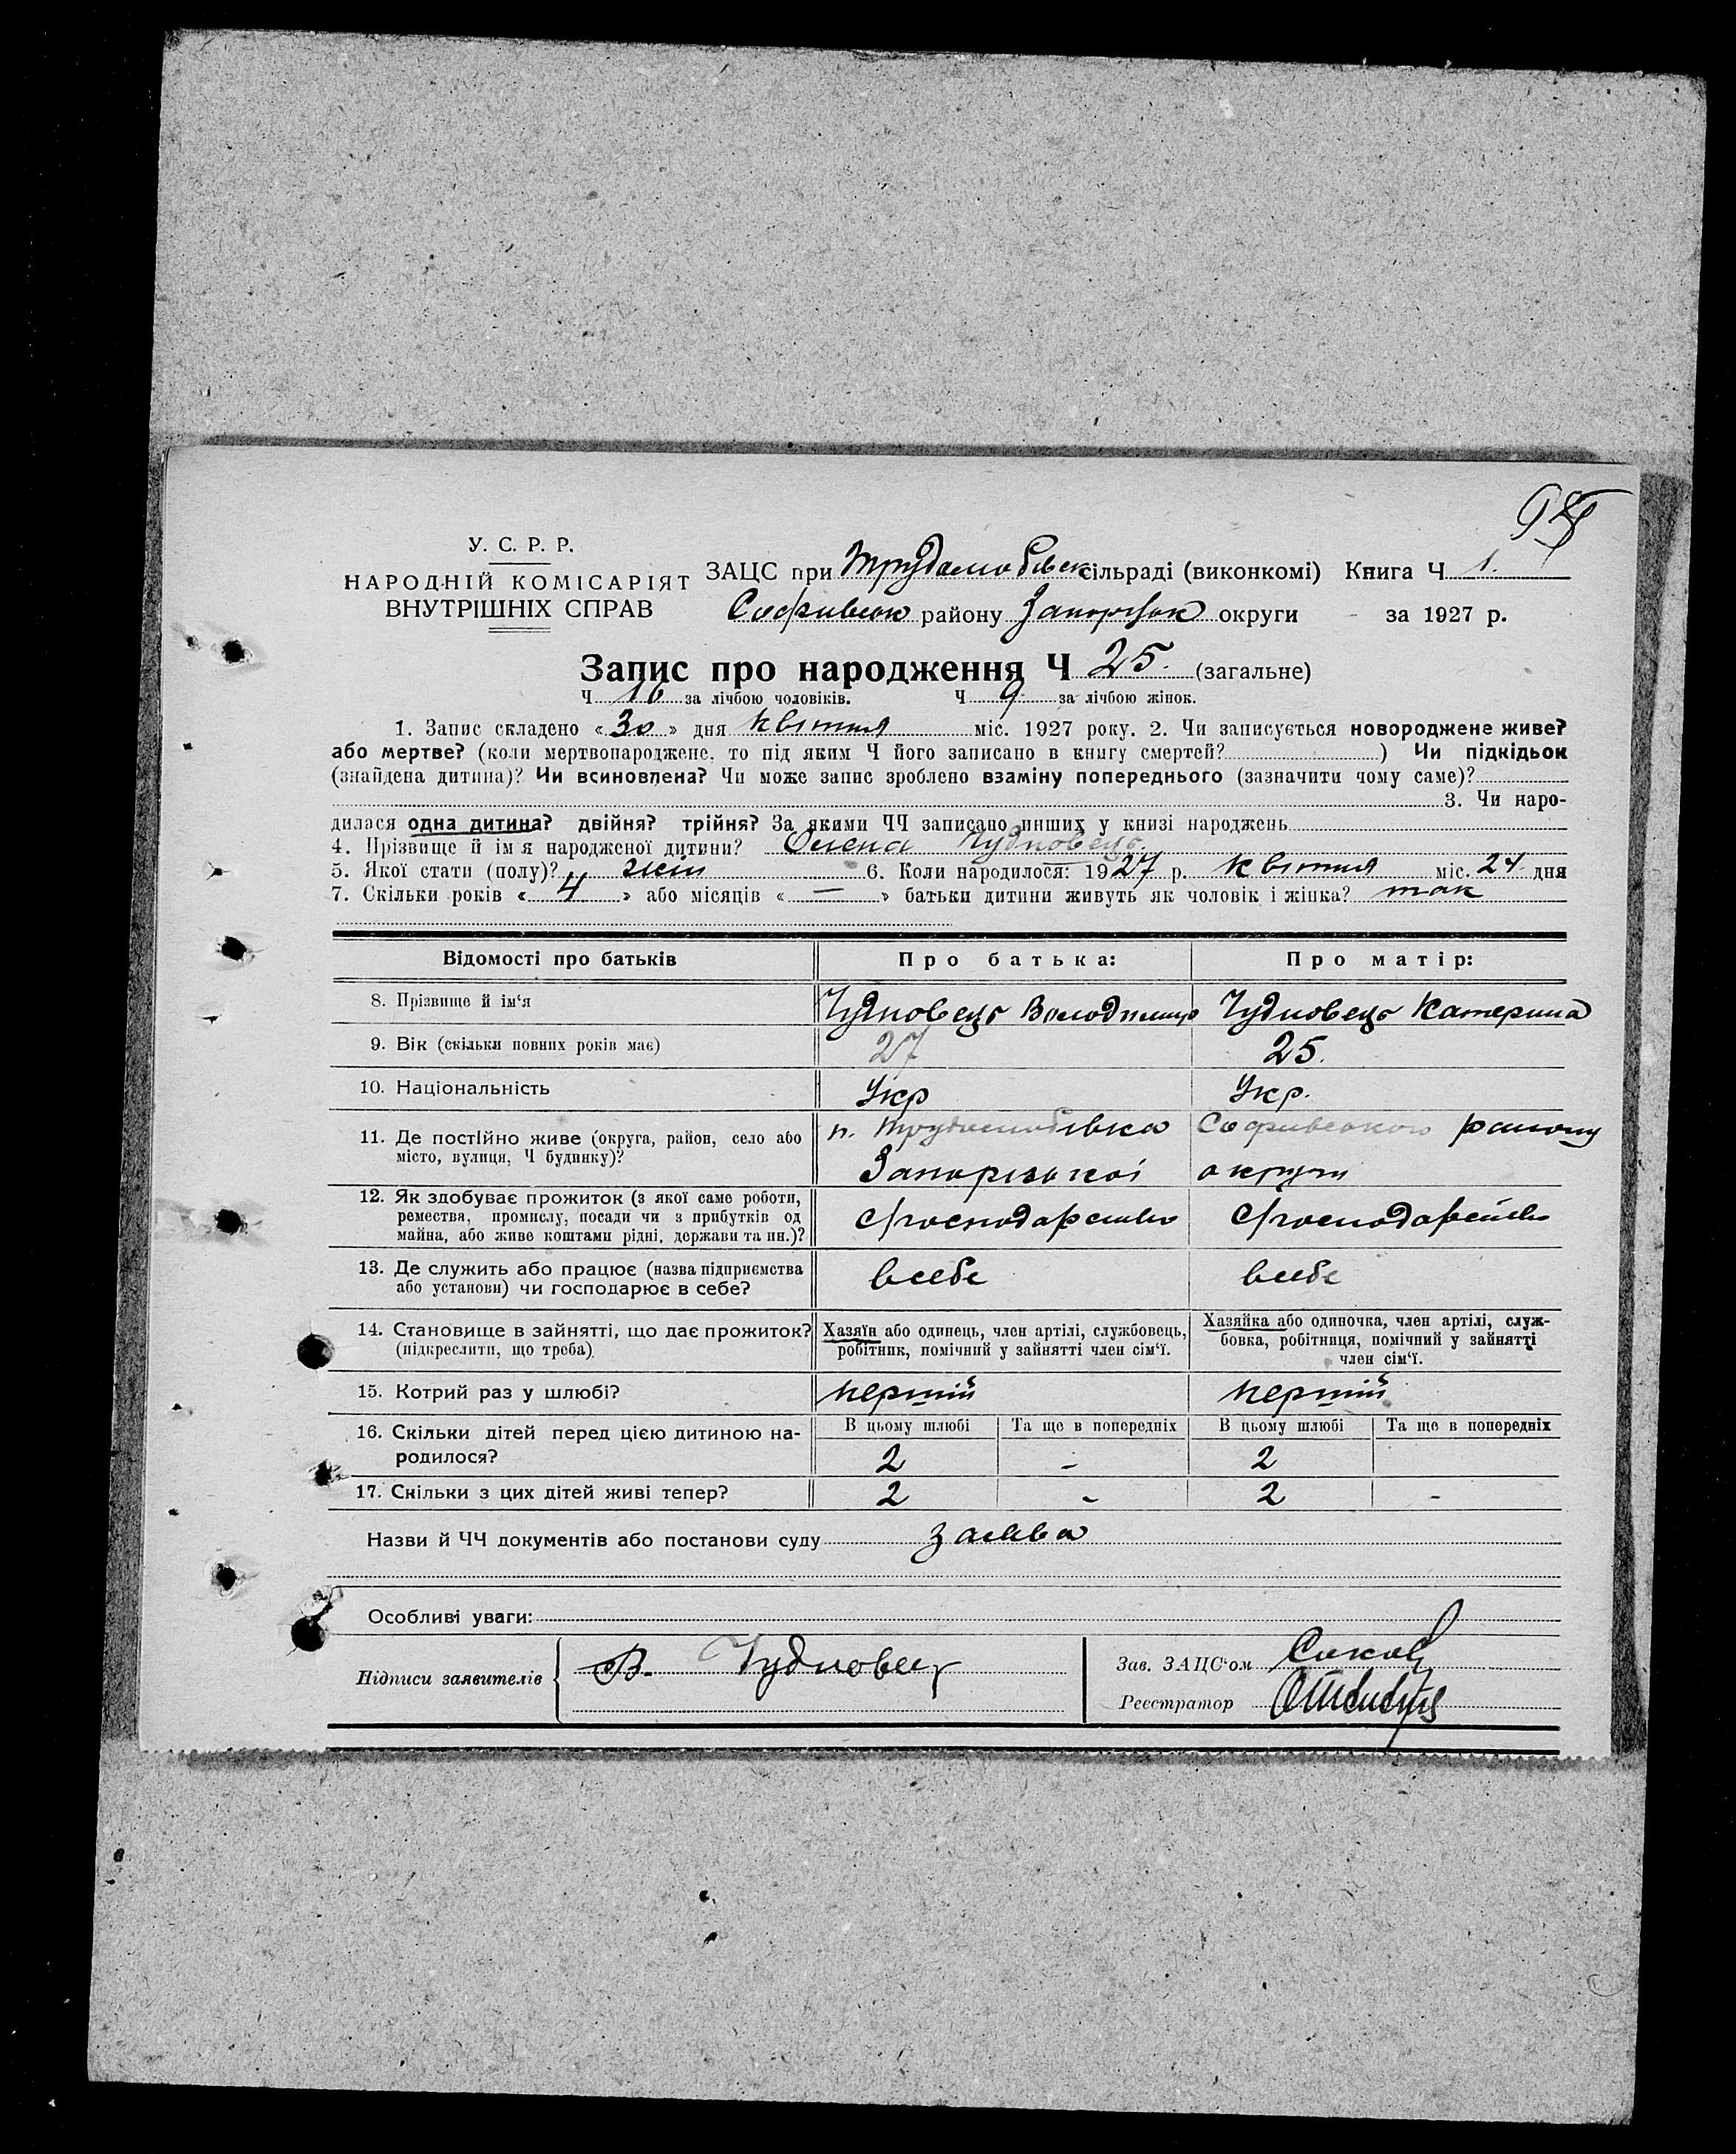 У. С. Р. Р.
НАРОДНІЙ КОМІСАРІЯТ
ВНУТРІШНІХ СПРАВ
ЗАЦС при Трудолюбівск сільраді (виконкомі) Книга Ч 1.
Софиївськ району Запоріж округи за 1927 р.
Запис про народження Ч 25. (загальне)
Ч 16 за лічбою чоловіків. Ч 9 за лічбою жінок.
1. Запис складено «30» дня квітня міс. 1927 року. 2. Чи записується новороджене живе?
або мертве? (коли мертвонароджене, то під яким Ч його записано в книгу смертей? ) Чи підкідьок
(знайдена дитина)? Чи всиновлена? Чи може запис зроблено взаміну попереднього (зазначити чому саме)?
3. Чи наро-
дилася одна дитина? двійня? трійня? За якими ЧЧ записано инших у книзі народжень
4. Прізвище й імя народженої дитини? Олена Чудновець
5. Якої стати (полу)? жін 6. Коли народилося: 1927 р. квітня міс. 24 дня
7. Скільки років «4» або місяців «—» батьки дитини живуть як чоловік і жінка? так
Відомості про батьків Про батька: Про матір:
8. Прізвище й ім‘я Чудновець Володимир Чудновець Катерина
9. Вік (скільки повних років має) 27 25.
10. Національність Укр Укр.
11. Де постійно живе (округа, район, село або
місто, вулиця, Ч будинку)?
п. Трудолюбівка Софиївського району
Запорізької округи
12. Як здобуває прожиток (з якої саме роботи,
ремества, промислу, посади чи з прибутків од
майна, або живе коштами рідні, держави та ин.)?
13. Де служить або працює (назва підприємства
або установи) чи господарює в себе?
всебе всебе
14. Становище в зайнятті, що дає прожиток?
(підкреслити, що треба)
Хазяїн або одинець, член артілі, службовець,
робітник, помічний у зайнятті член сім‘ї.
Хазяйка або одиночка, член артілі, служ-
бовка, робітниця, помічний у зайнятті
член сім‘ї.
15. Котрий раз у шлюбі? перший перший
16. Скільки дітей перед цією дитиною на-
родилося?
В цьому шлюбі Та ще в попередніх В цьому шлюбі Та ще в попередніх
2 - 2
17. Скільки з цих дітей живі тепер? 2 - 2 -
Назви й ЧЧ документів або постанови суду заява
Особливі уваги:
Підписи заявителів В. Чудновец
Зав. ЗАЦС‘ом
Реєстратор